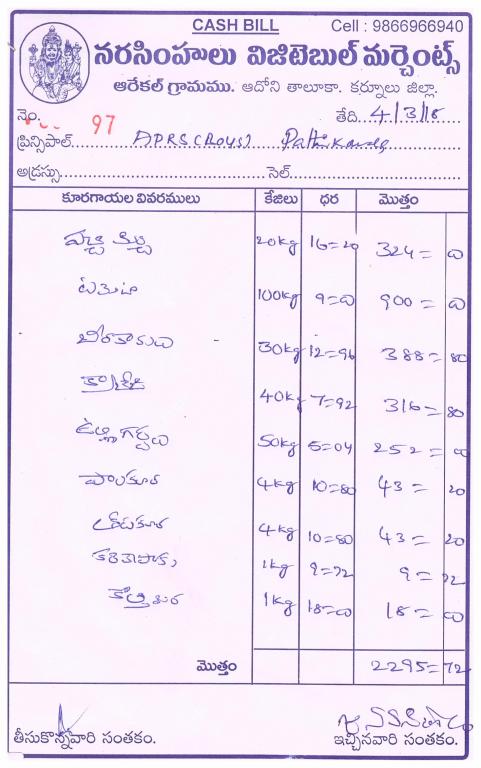 CASH BILL Cell : 9866966940
నరసింహులు విజిటెబుల్ మర్చెంట్స్
ఆరేకల్ గ్రామము. ఆదోని తాలూకా. కర్నూలు జిల్లా.
నెం. 97 తేది..4/3/18
ప్రిన్సిపాల్ APRS (Boys)
అడ్రస్సు సెల్
కూరగాయల వివరములు కేజిలు ధర మొత్తం
20kg 16=20 324= 00
టమోటా 100kg 9=00 900= 00
బీరకాయ 30kg 12=96 388= 80
40kg 7=92 316= 80
ఉల్లిగడ్డలు 50kg 5=04 252= 00
పాలకూర 4kg 10=80 43= 20
4kg 10=80 43= 20
కరెపాకు 1kg 9=72 9= 72
కొత్తిమీర 1kg 18=00 18= 00
మొత్తం 2295= 72
తీసుకొన్నవారి సంతకం. ఇచ్చినవారి సంతకం.